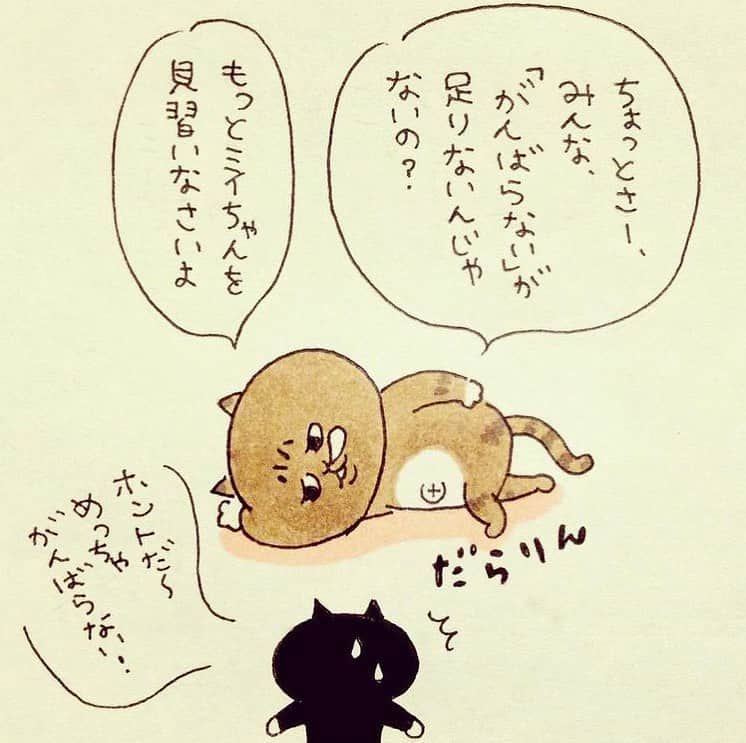 ちょっとさー、
みんな、
「がんばらない」が
足りないんじゃ
ないの？
もっとミイちゃんを
見習いなさいよ
だらりん
ホントだ〜
めっちゃ
がんばらない…